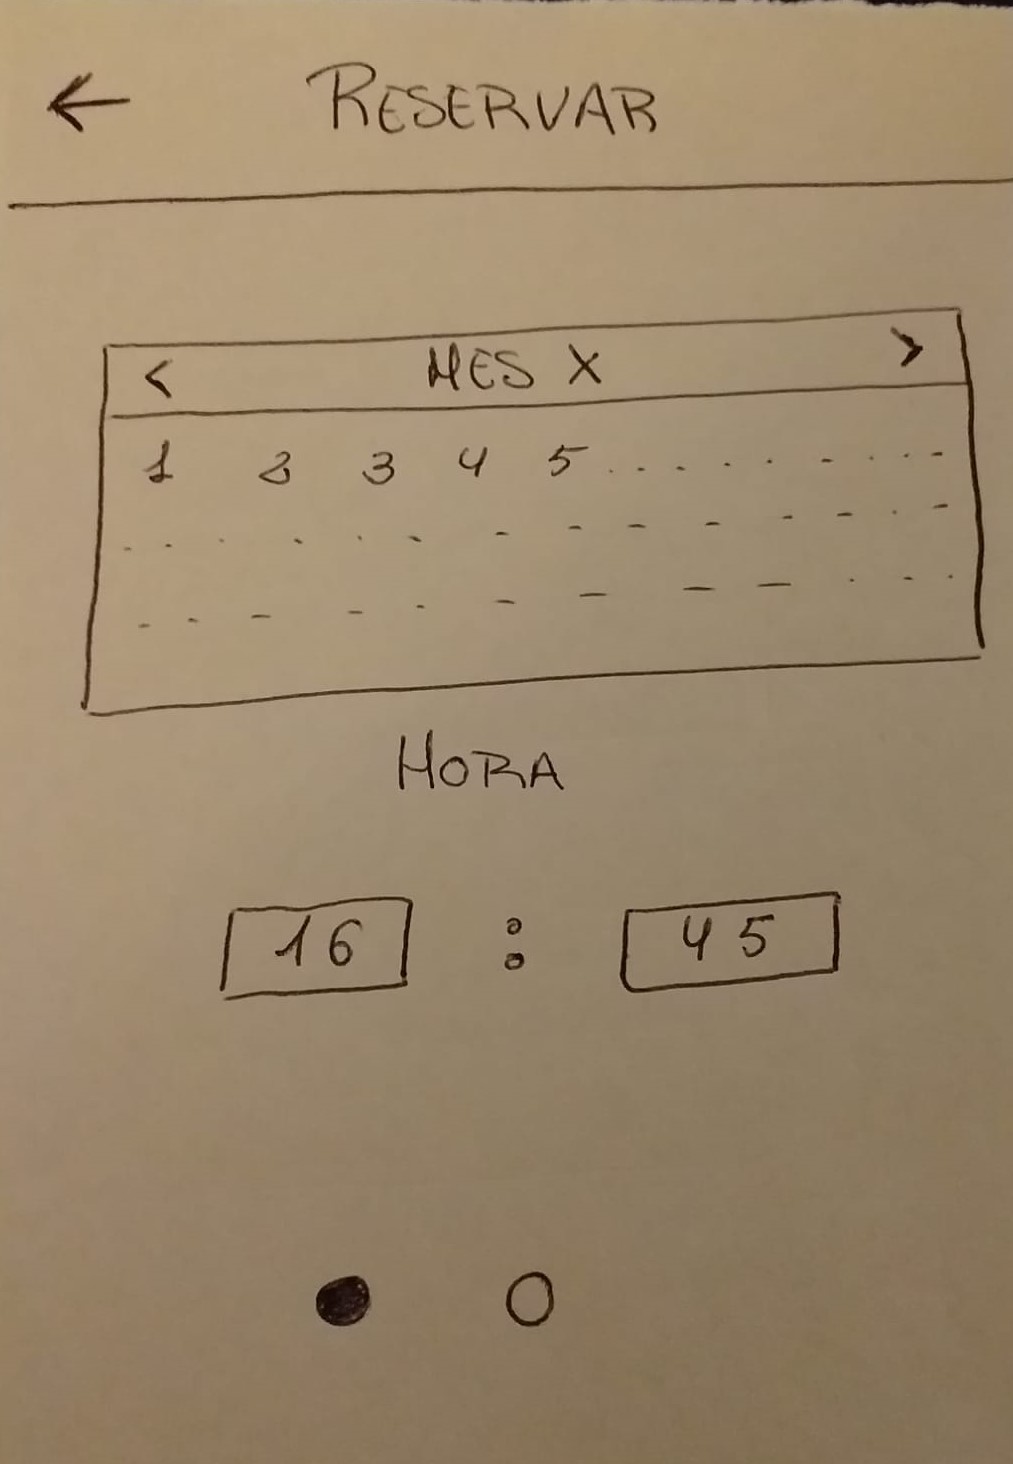 ← RESERVAR
< MES X >
1 2 3 4 5
HORA
16 : 45